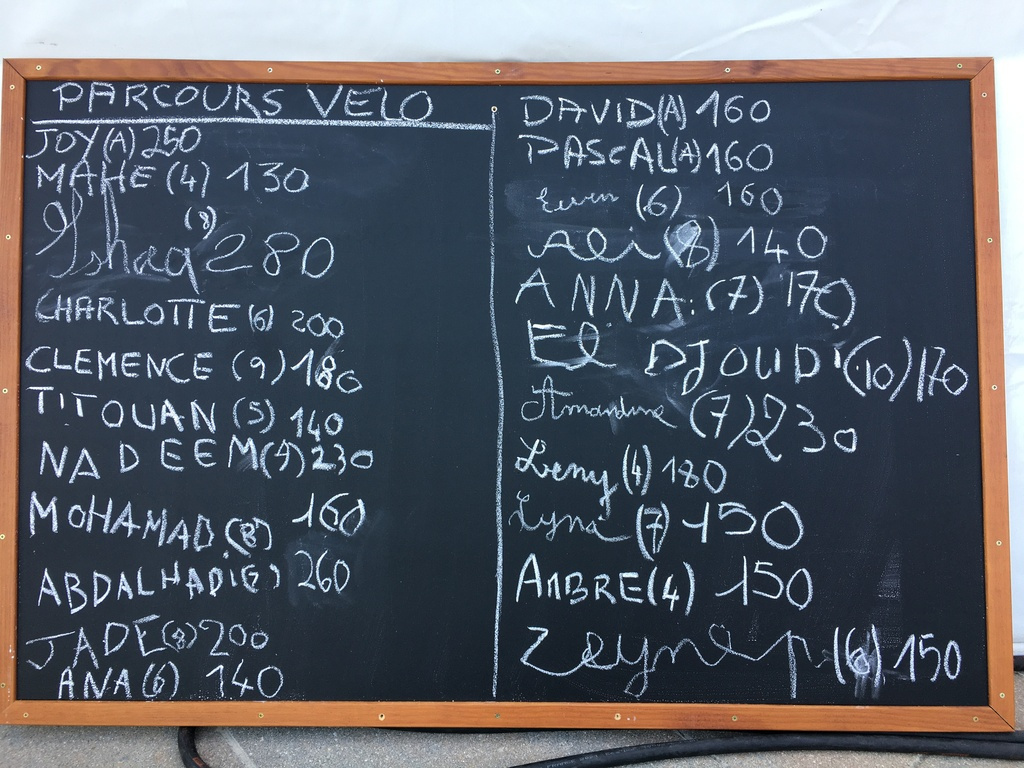 PARCOURS VELO
JOY(A) 250
MAHE (4) 130
Ishaq (8) 280
CHARLOTTE (6) 200
CLEMENCE (9) 180
TITOUAN (5) 140
NADEEM(4) 230
MOHAMAD (8) 160
ABDALHADI(6) 260
JADE(8) 200
ANA(6) 140
DAVID(A) 160
PASCAL(A) 160
(6) 160
Ali (8) 140
ANNA: (7) 170
El DJOUDI (10) 170
Amandine (7) 230
Leny (4) 180
Lyna (7) 150
AMBRE(4) 150
Zeynep (6) 150